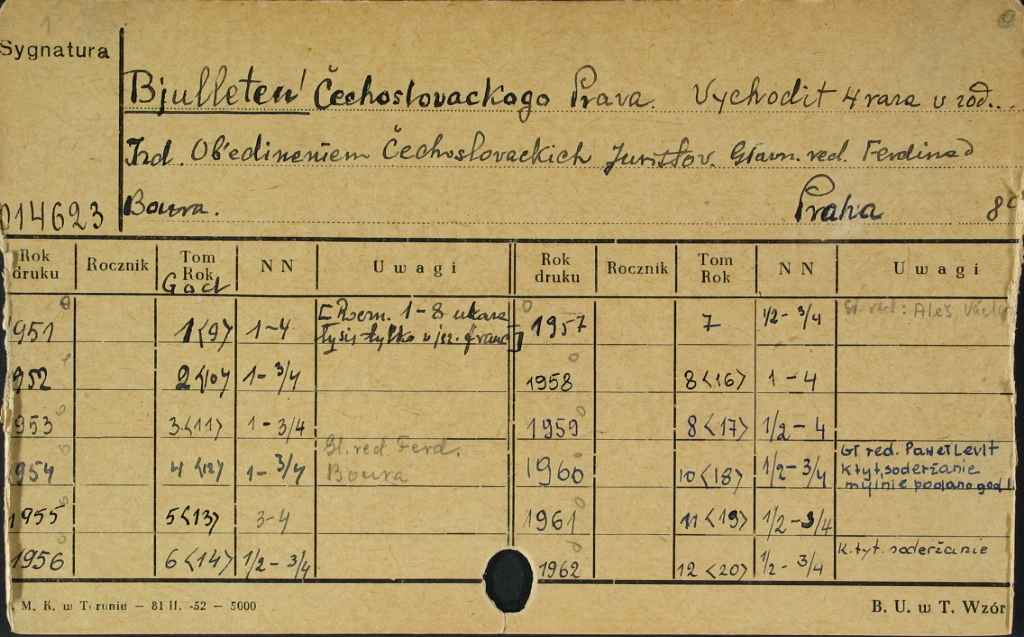 Sygnatura
Bjulleten' Čechoslovackogo Prava. Vychodit 4 raza v god...
Izd. Ob'edineniem Čechoslovackich Juristov. Glavn. red. Ferdinad
014623 Boura. Praha 8°
Rok druku Rocznik Tom Rok NN Uwagi Rok druku Rocznik Tom Rok NN Uwagi
God
1951 1<9> 1-4 [Roczn. 1-8 ukaza 1957 7 1/2-3/4 Gl. red.: Aleš
ły się tylko w jęz. franc.]
1952 2<10> 1-3/4 1958 8<16> 1-4
1953 3<11> 1-3/4 1959 8<17> 1/2-4
1954 4<12> 1-3/4 Gl. red Ferd. Boura 1960 10<18> 1/2-3/4 Gł red. Paweł Levit
K.tyt. soderžanie
mylnie podano god
1955 5<13> 3-4 1961 11<19> 1/2-3/4
1956 6<14> 1/2-3/4 1962 12<20> 1/2-3/4 K.tyt. soderžanie
. M. K. w Toruniu — 81 II. -52 — 5000 B. U. w T. Wzór